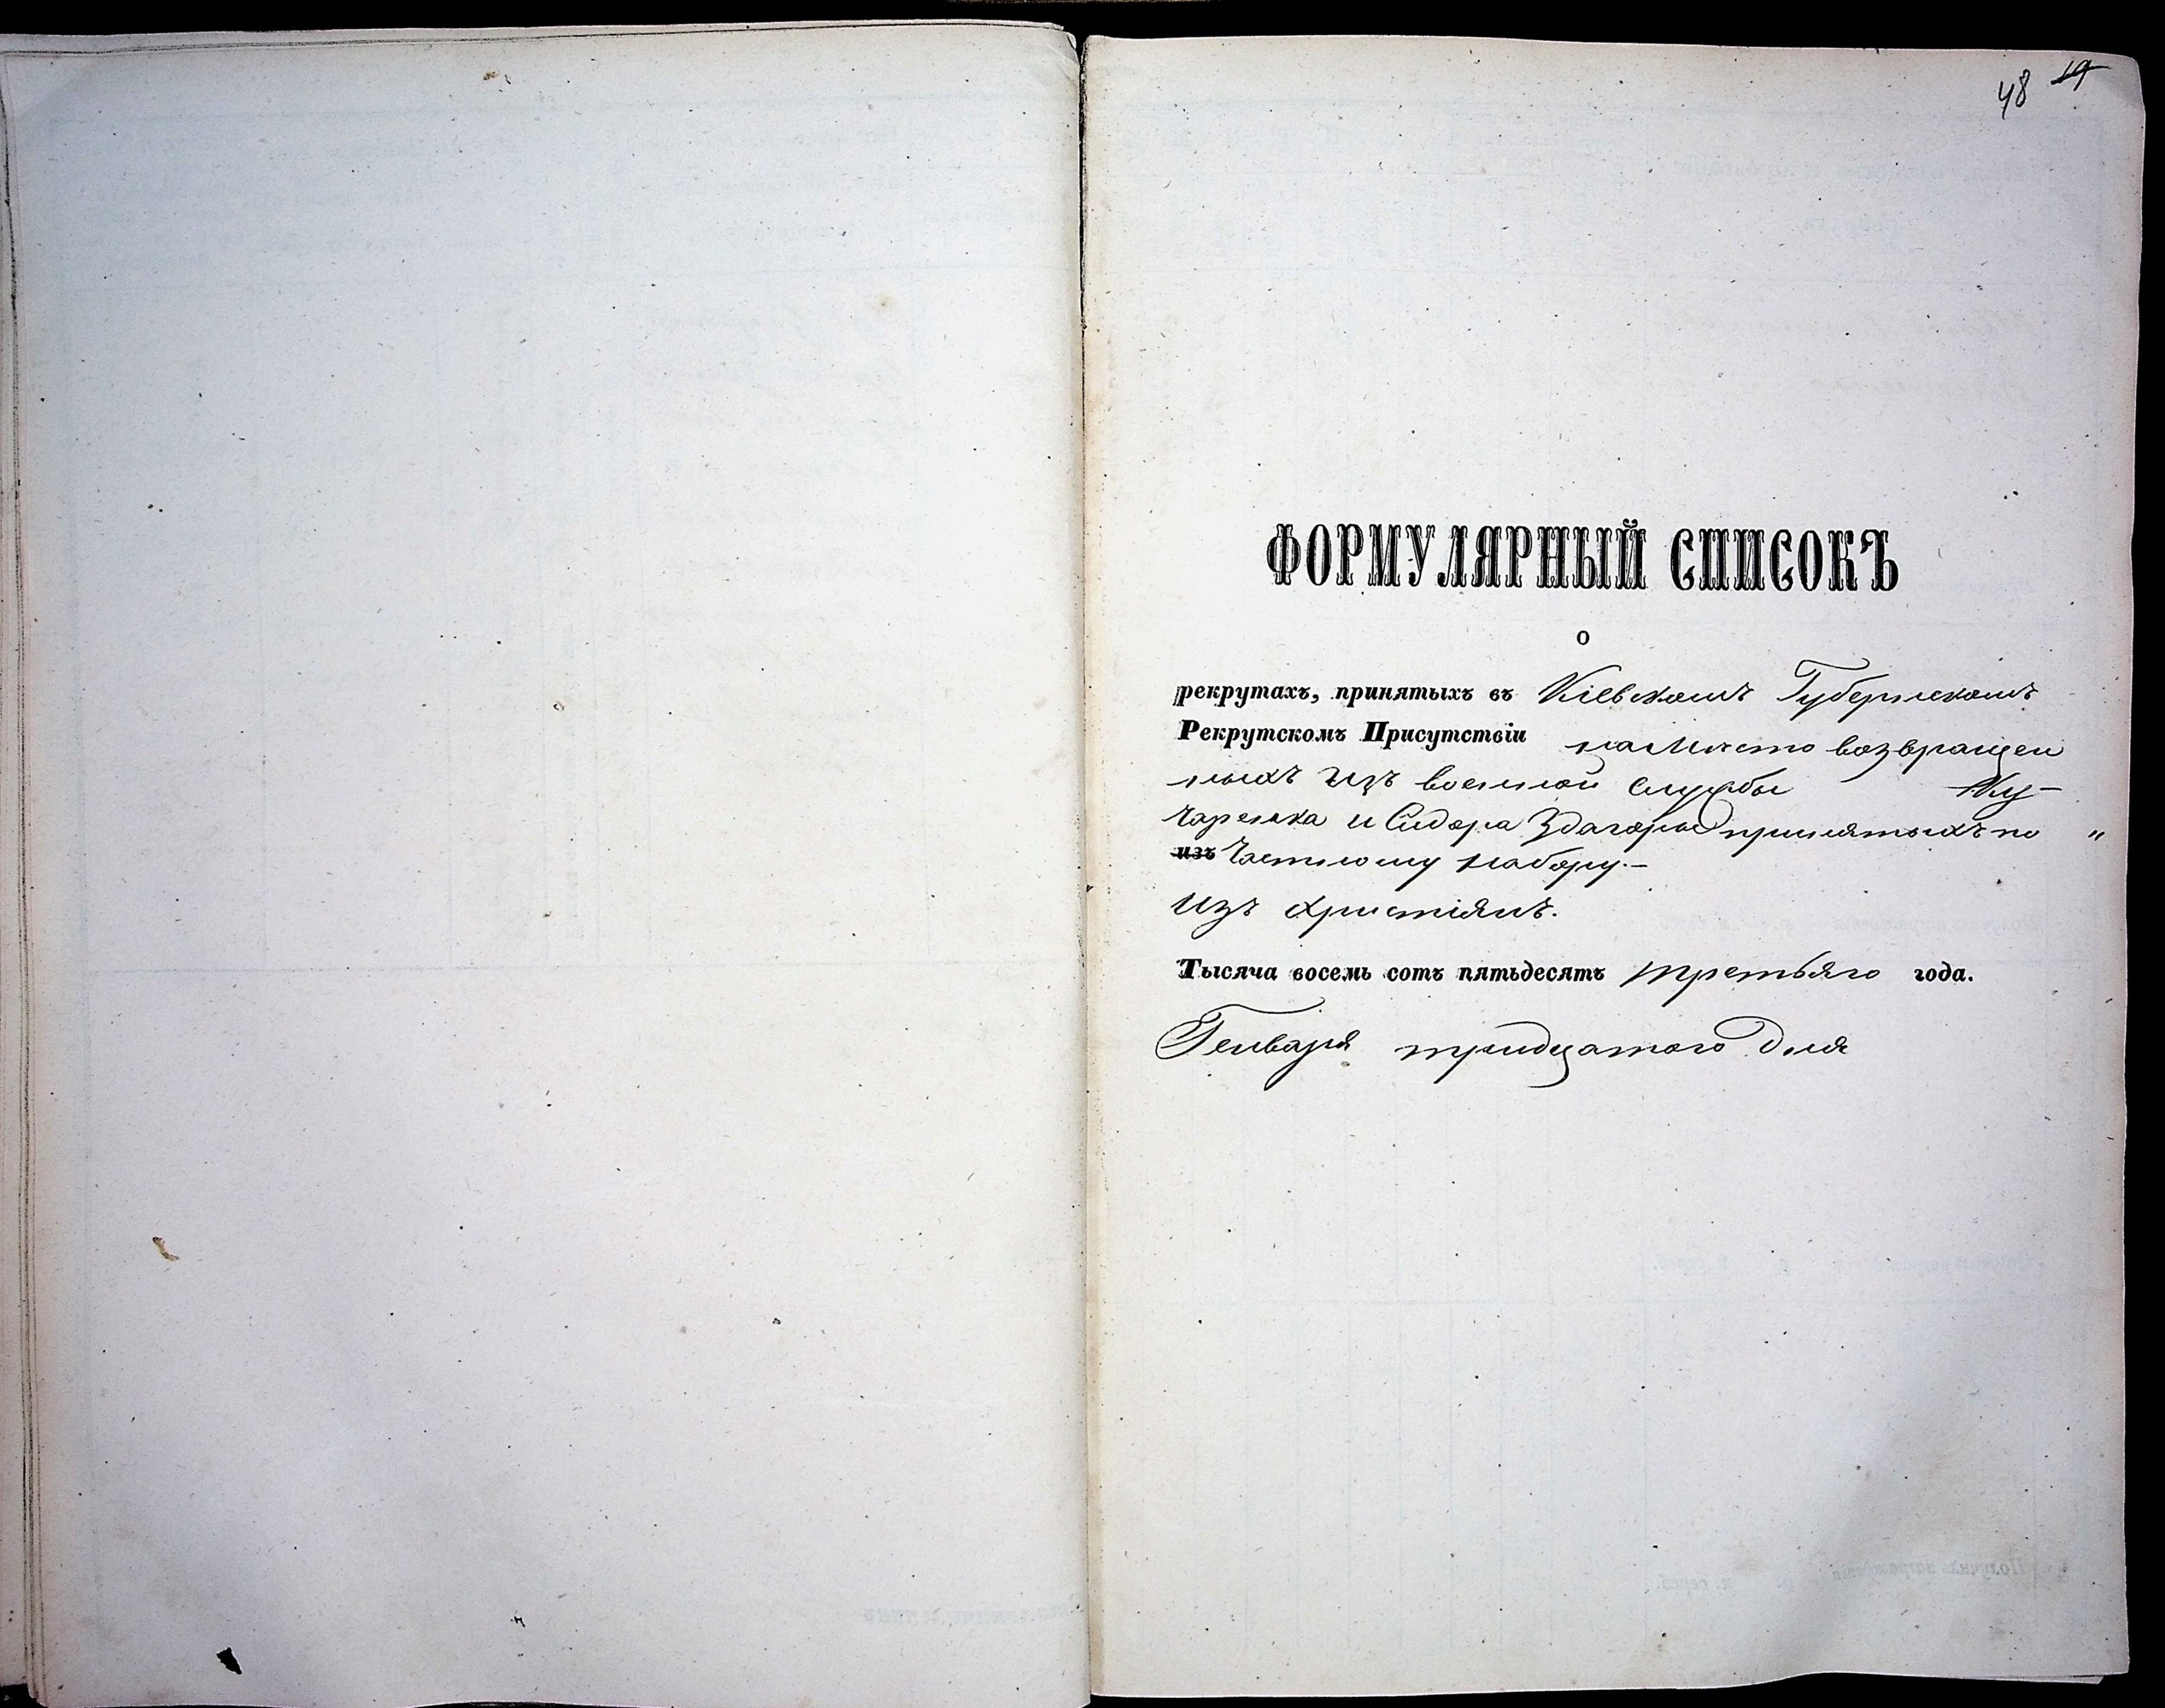 48 19
ФОРМУЛЯРНЫЙ СПИСОКЪ
о
рекрутахъ, принятыхъ въ Кіевскомъ Губернскомъ
Рекрутскомъ Присутствіи на Мѣсто возвращен
ныхъ изъ военной службы Ку-
чаренка и Сидора Здагоры принятыхъ по "
изъ Частному набору.-
Изъ христіянъ.
Тысяча восемь сотъ пятьдесятъ третьяго года.
Генваря тридцатого дня